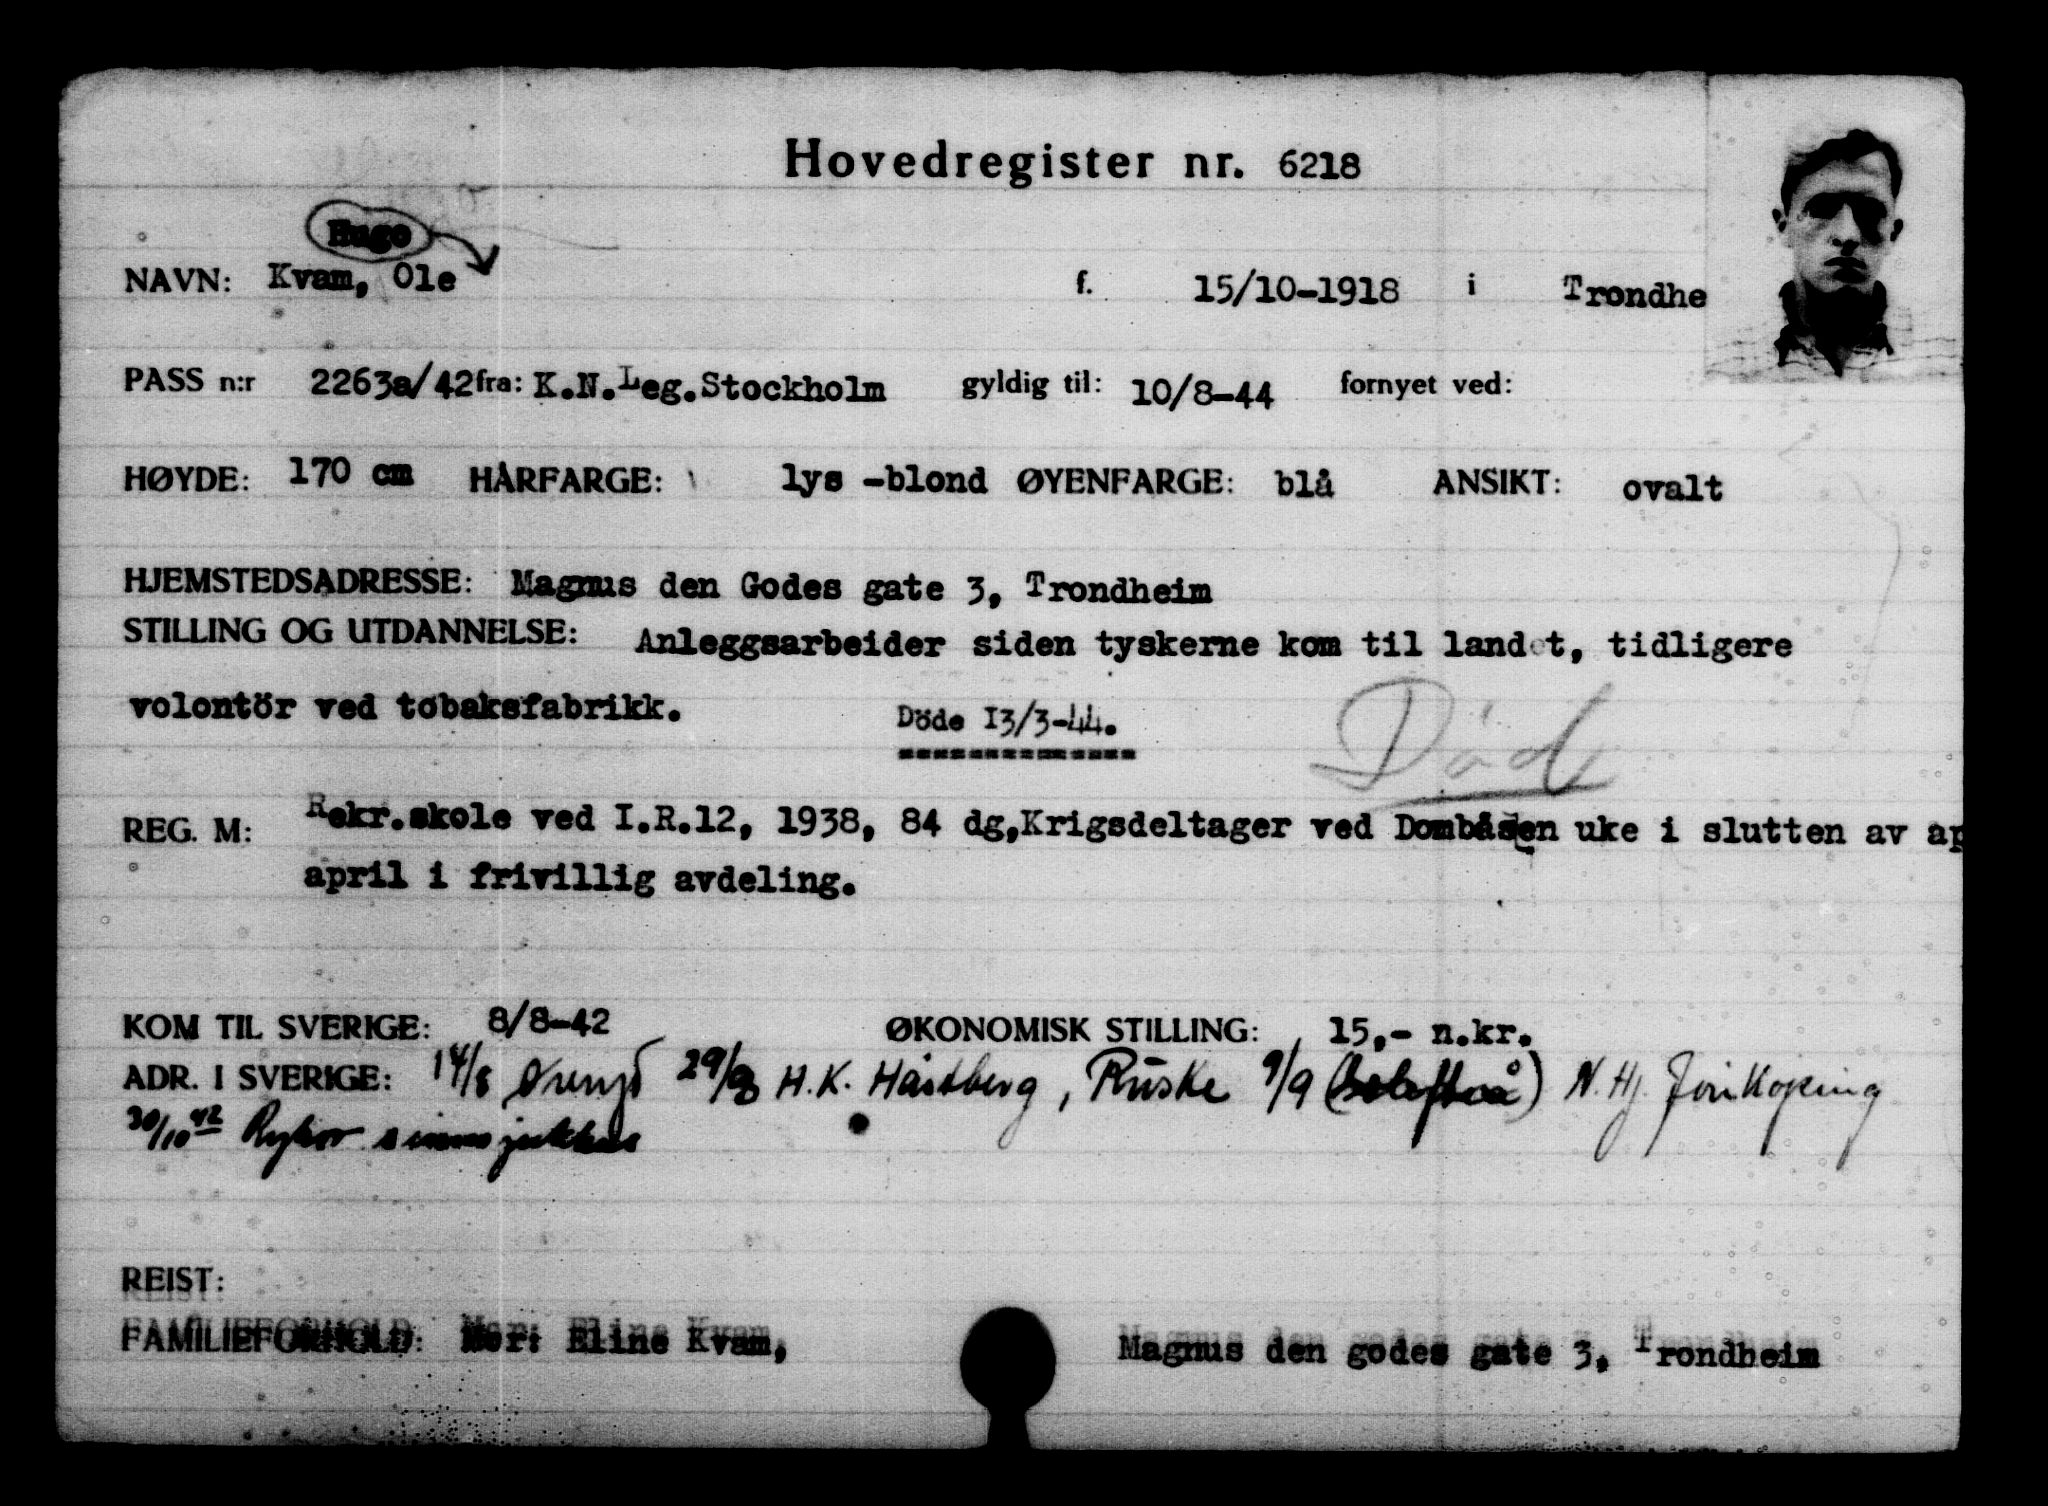 Hovedregister nr. 6218
Hugo
NAVN: Kvam, Ole f. 15/10-1918 i Trondhe
PASS n:r 2263a/42 fra: K.N.Leg.Stockholm gyldig til: 10/8-44 fornyet ved:
HØYDE: 170 cm HÅRFARGE: lys -blond ØYENFARGE: blå ANSIKT: ovalt
HJEMSTEDSADRESSE: Magnus den Godes gate 3, Trondheim
STILLING OG UTDANNELSE: Anleggsarbeider siden tyskerne kom til landet, tidligere
volontör ved tobaksfabrikk.
Döde 13/3-44.
Död
REG. M: Rekr.skole ved I.R.12, 1938, 84 dg,Krigsdeltager ved Dombåsen uke i slutten av ap
april i frivillig avdeling.
KOM TIL SVERIGE: 8/8-42 ØKONOMISK STILLING: 15,- n.kr.
ADR. I SVERIGE: 14/8 29/8 H.K. Håstberg, Rüske 9/9 N. Hj. Jönköping
30/10 42 sinnssjukhus
REIST:
FAMILIEFORHOLD: Mor: Eline Kvam, Magnus den godes gate 3, Trondheim